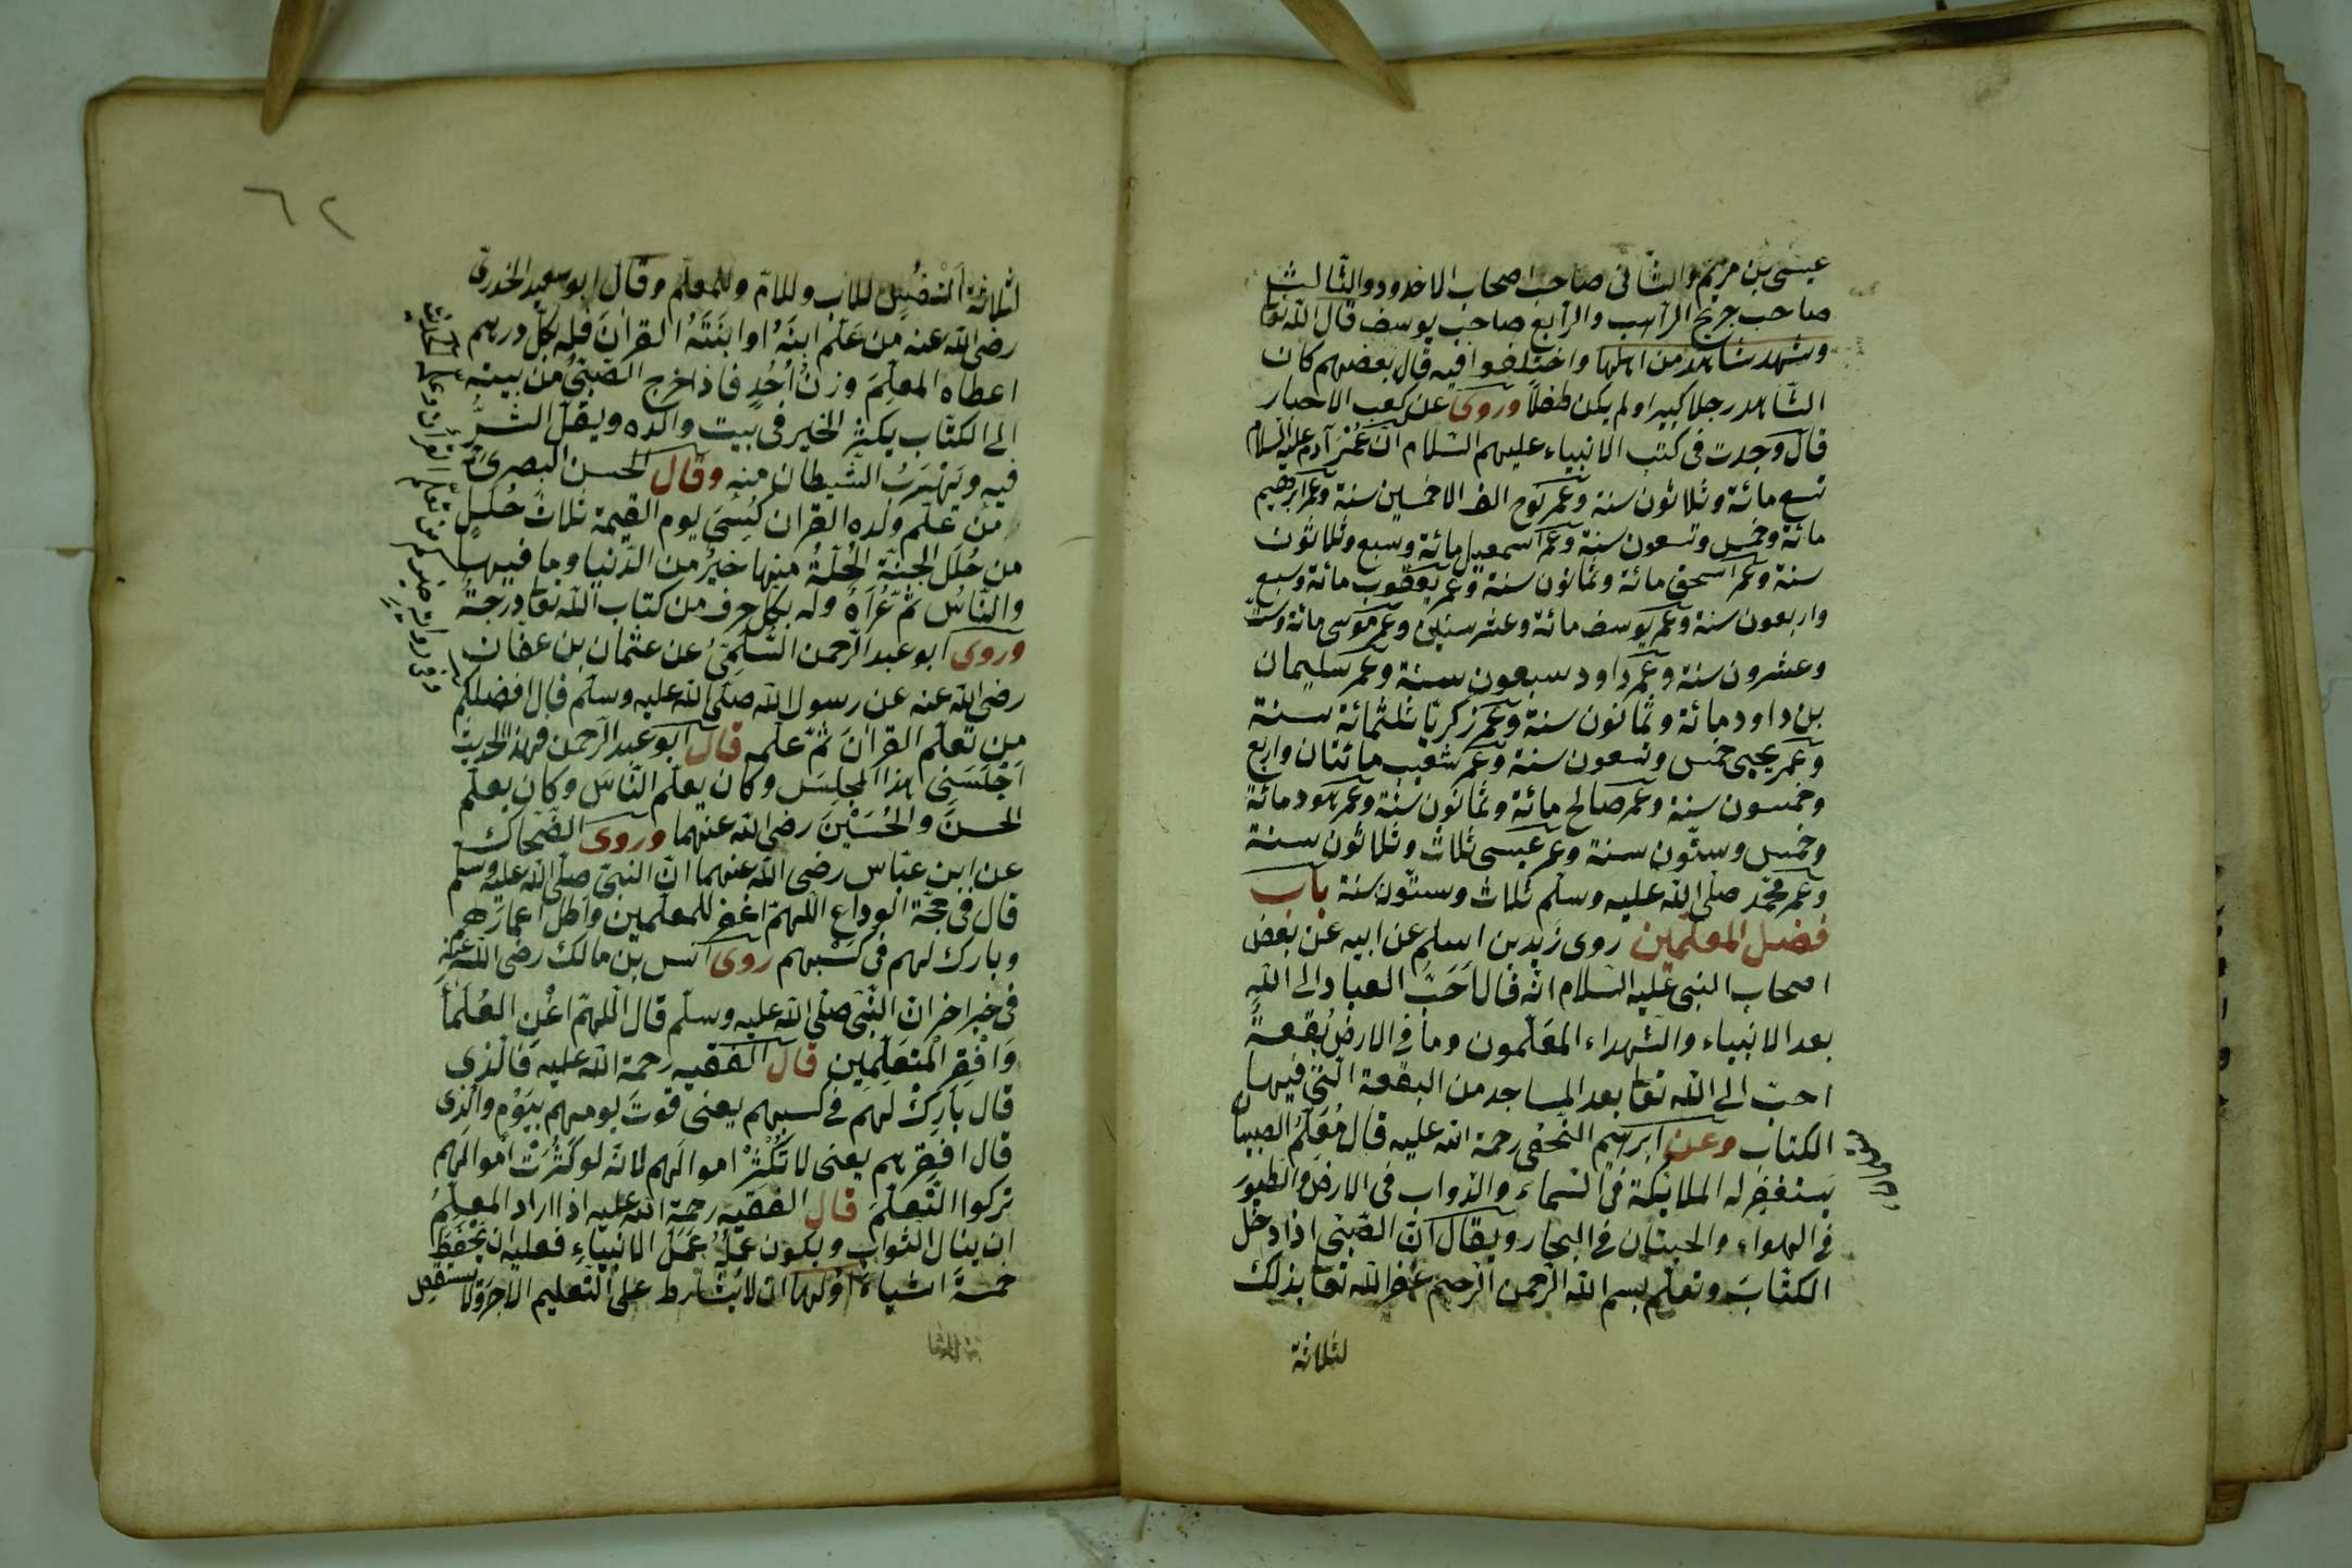 عيسى بن مريم والثانى صاحب اصحاب الاخدود والثالث
صاحب جريج الراهب والرابع صاحب يوسف قال الله تعا
وشهد شاهد من اهلها واختلفوا فيه قال بعضهم كان
الشاهد رجلا كبيرا ولم يكن طفلاً وروى عن كعب الاحبار
قال وجدت فى كتب الانبياء عليهم السلام ان عُمْرَ آدم عليه السلام
تسع مائة وثلاثون سنة وعمر نوح الف الا خمسين سنة وعمر ابرهيم
مائة وخمس وتسعون سنة وعمر اسمعيل مائة وسبع وثلاثون
سنة وعمر اسحق مائة وثمانون سنة وعمر يعقوب مائة وسبع
واربعون سنة وعمر يوسف مائة وعشر سنين وعمر موسى مائة وست
وعشرون سنة وعمر داود سبعون سنة وعمر سليمان
بن داود مائة وثمانون سنة وعمر زكريا ثلثمائة سنة
وعمر يحيى خمس وتسعون سنة وعمر شعيب مائتان واربع
وخمسون سنة وعمر صالح مائة وثمانون سنة وعمر هود مائة
وخمس وستون سنة وعمر عيسى ثلاث وثلاثون سنة
وعمر محمّد صلّى الله عليه وسلم ثلاث وستون سنة باب
فضل المعلمين روى زيد بن اسلم عن ابيه عن بعض
اصحاب النبى عليه السلام انّه قال اَحَبّ العباد الى الله
بعد الانبياء والشهداء المعَلّمون وما فى الارض بُقعةً
احبّ الى الله تعا بعد المساجد من البقعة الّتى فيها
الكتاب وعن ابرهيم النخعى رحمة الله عليه قال مُعَلِّمُ الصبيان
يستغفر له الملائكة فى السماء والدواب فى الارض والطيور
فى الهواء والحيتان فى البحار ويقال ان الصّبى اذا دخل
الكتابَ وتعلّم بسم الله الرحمن الرحيم غفر الله تعا بذلك
لثلاثة
٦٢
لثلاثة اَنْفُسٍ للاب وللامّ وللمعلّم وقال ابو سعيد الخدرى
رضى الله عنه مَن عَلّم ابنَهُ اوابنَتَهُ القرانَ فله بكلّ درهم
اعطاه المعلّمَ وزنُ اُحُدٍ فاذا خرج الصّبىُّ من بيته
الى الكتّاب يكثر الخير فى بيت والده ويقلّ الشرُّ
فيه ويَهْرَبُ الشيطان منه وقال الحسن البصرى
من علّم ولده القران كُسِىَ يوم القيمة ثلاثَ حُلَلٍ
من حُلَل الجنّة الحُلّةُ منها خيرُ من الدّنيا وما فيها
والنّاسُ ثَمَّ عُرَاةٌ وله بكل حرف من كتاب الله تعا درجةٌ
وروى ابو عبد الرحمن السُّلَمِىّ عن عثمان بن عفان
رضى الله عنه عن رسول الله صلّى الله عليه وسلّم قال افضلكم
من تعلّم القرانَ ثمّ علّمه قال ابو عبد الرّحمن فهذا الحديث
اَجْلَسَنى هذا المجلِسَ وكان يعلّم النّاسَ وكان يعلّم
الحسنَ والحُسَيْنَ رضى الله عنهما وروى الضّحاك
عن ابن عبّاس رضى الله عنهما انّ النبىّ صلى الله عليه وسلم
قال فى حجّة الوداع اللهمّ اغفر للمعلّمين واَطِل اعمارَهم
وبارك لهم فى كَسْبهم روى انس بن مالك رضى الله عنه
فى خبر اخر انّ النّبىّ صلّى الله عليه وسلّم قال اللّهمّ اغْنِ العُلَمَأَ
وَاَفْقِرِ المتعَلِّمِين قال الفقيه رحمة الله عليه فالّذى
قال بَارِكْ لهم فى كسبهم يعنى قوتَ يومهم بيَوْم والّذى
قال افقِرْهم يعنى لا تُكْثِرْ اموالَهم لانّه لو كَثُرَتْ اموالهم
تركوا التّعلّمَ قال الفقيه رحمة الله عليه اذا اراد المعلّمُ
ان ينال الثواب ويكون عملُهُ عَمَلَ الانبياءِ فعليه ان يَحْفَظَ
خمسةَ اشياءَ اوّلها ان لا يُشَارِط على التّعليم الاجرَ ولا يستقصى
وفى رواية خيركم من تعلّم القرأن وعلّمه الحديث